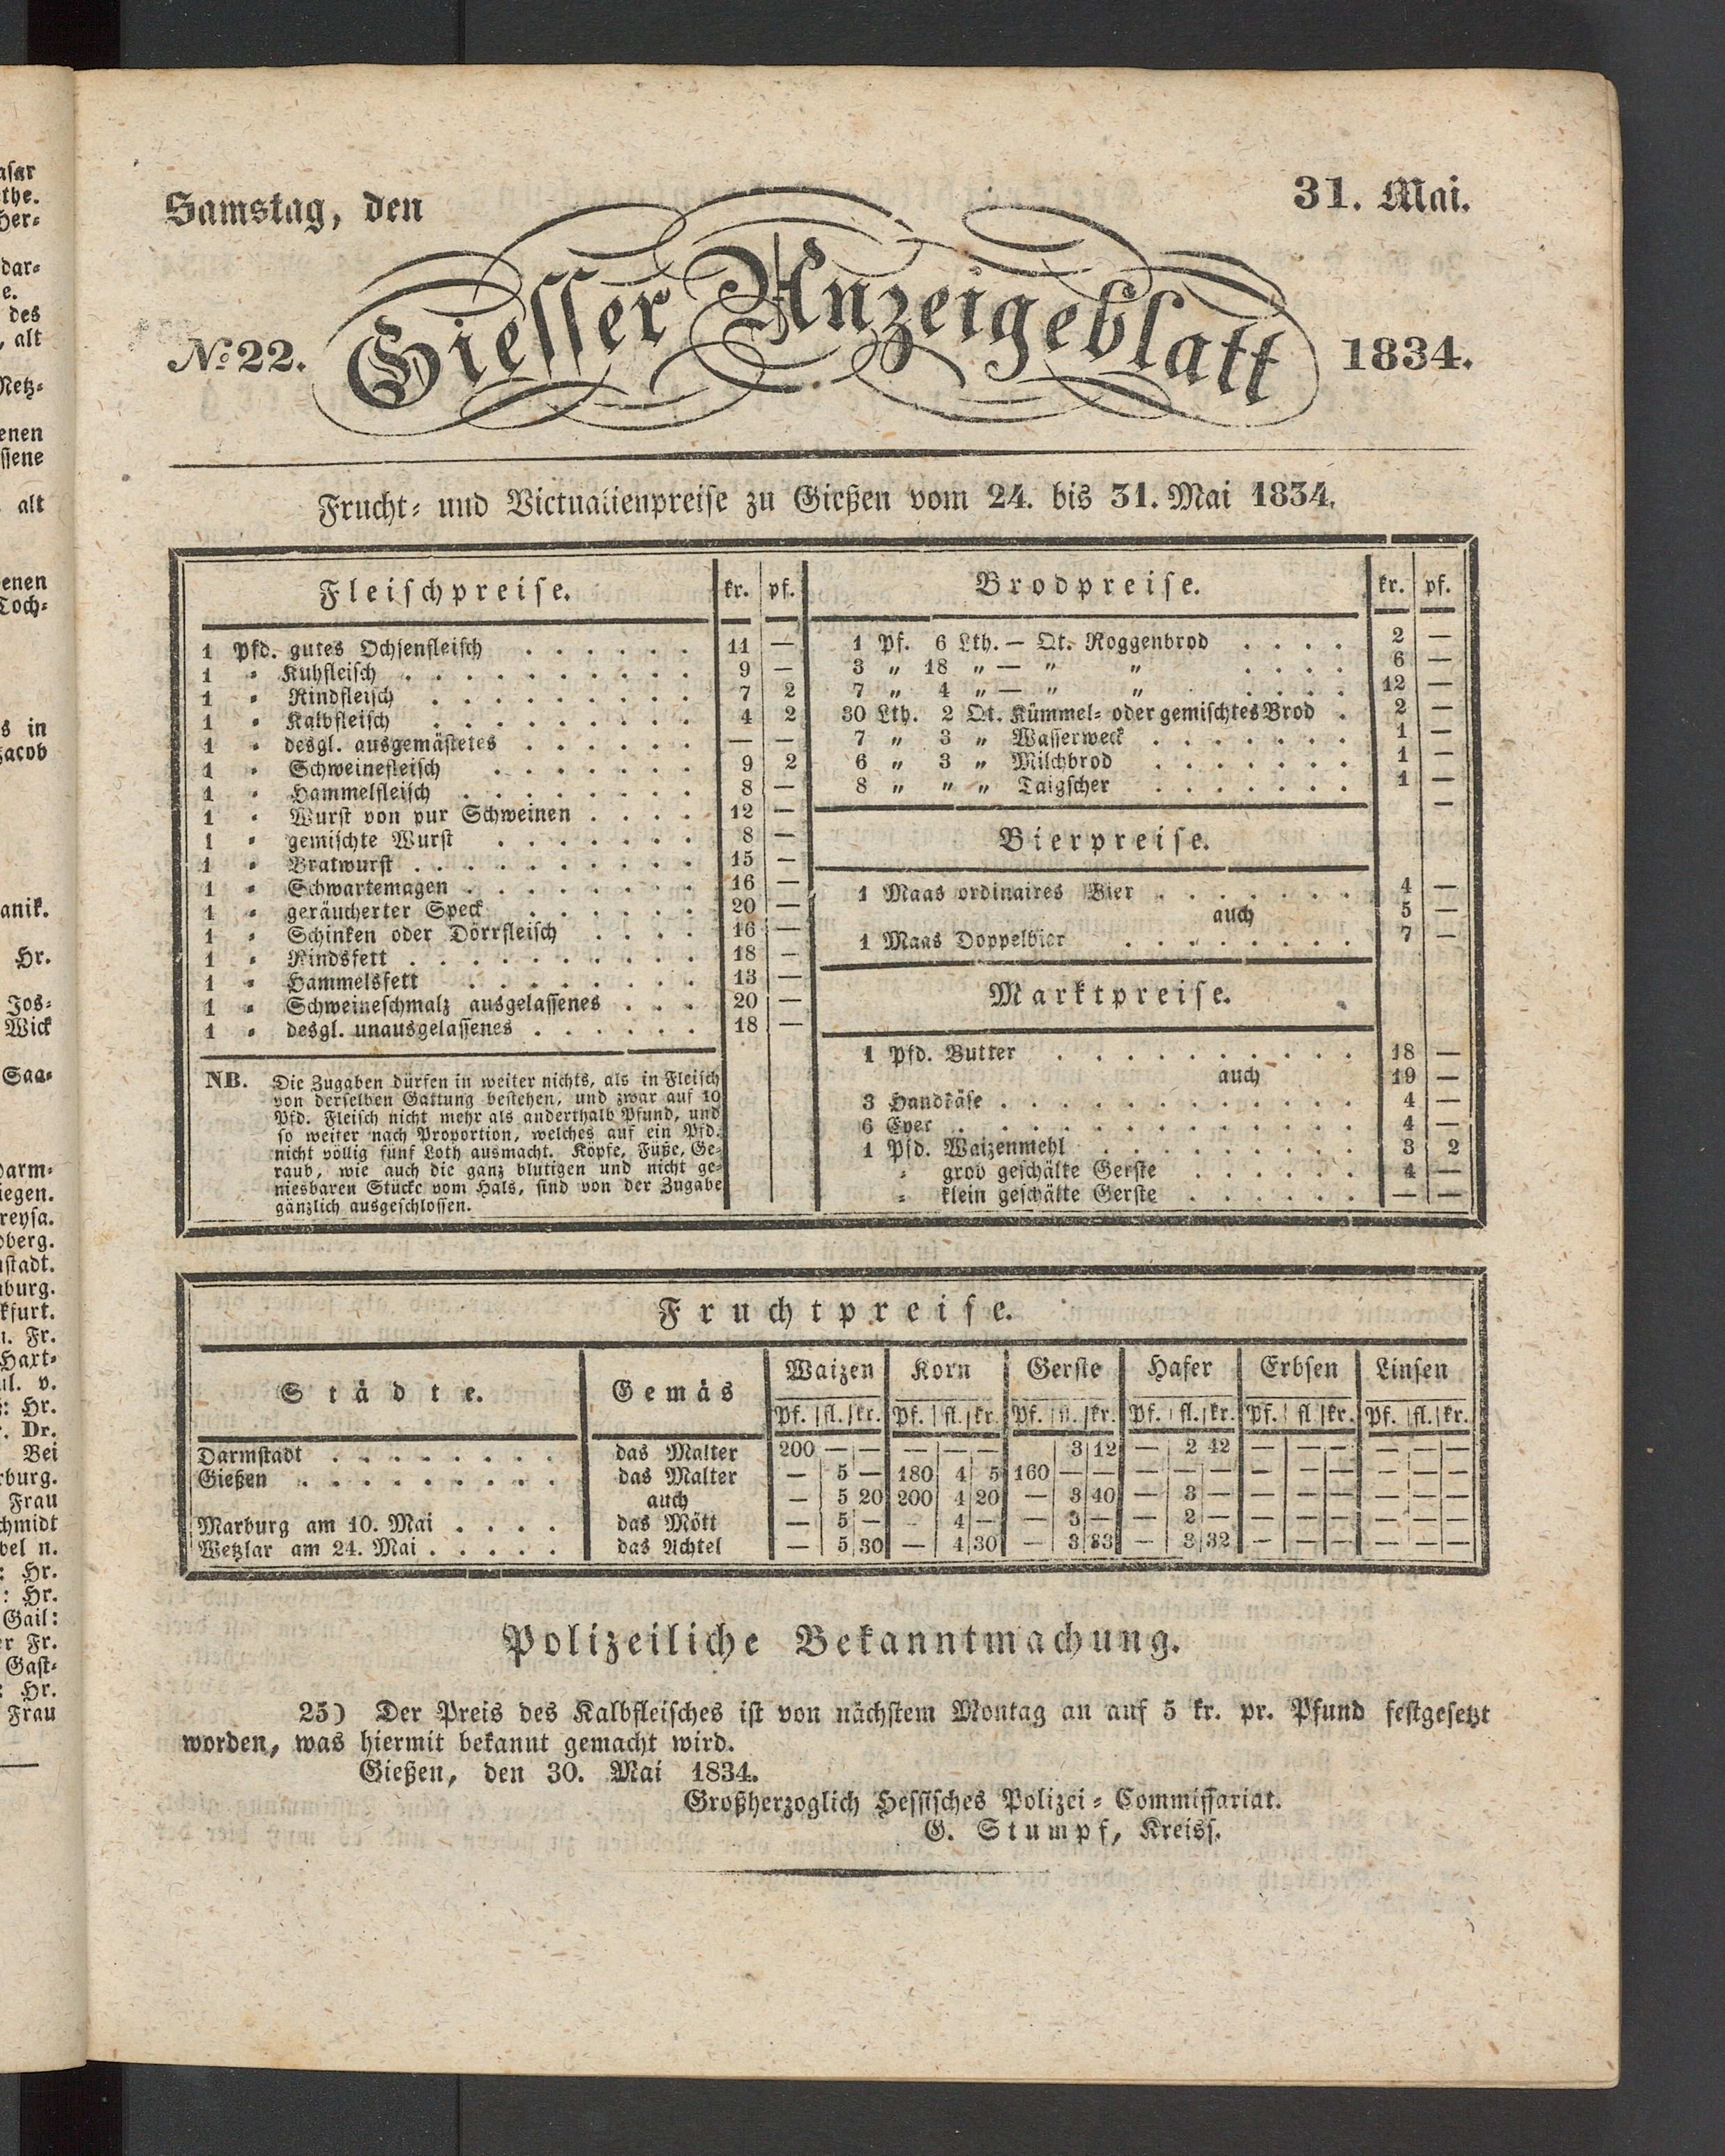 Samstag, den
31. Mai.
No. 22.
Giesser Anzeigeblatt
1834.
Frucht- und Victualienpreise zu Gießen vom 24. bis 31. Mai 1834.
Fleischpreise. kr. pf.
1 Pfd. gutes Ochsenfleisch . . . . . . 11 —
1 " Kuhfleisch . . . . . . . . . . 9 —
1 " Rindfleisch . . . . . . . . . 7 2
1 " Kalbfleisch . . . . . . . . . 4 2
1 " desgl. ausgemästetes . . . . . . — —
1 " Schweinefleisch . . . . . . . 9 2
1 " Hammelfleisch . . . . . . . . 8 —
1 " Wurst von pur Schweinen . . . . 12 —
1 " gemischte Wurst . . . . . . . 8 —
1 " Bratwurst . . . . . . . . . . 15 —
1 " Schwartemagen . . . . . . . . 16 —
1 " geräucherter Speck . . . . . . 20 —
1 " Schinken oder Dörrfleisch . . . . 16 —
1 " Rindsfett . . . . . . . . . . 18 —
1 " Hammelsfett . . . . . . . . 13 —
1 " Schweineschmalz ausgelassenes . . . 20 —
1 " desgl. unausgelassenes . . . . . . 18 —
NB. Die Zugaben dürfen in weiter nichts, als in Fleisch
von derselben Gattung bestehen, und zwar auf 10
Pfd. Fleisch nicht mehr als anderthalb Pfund, und
so weiter nach Proportion, welches auf ein Pfd.
nicht völlig fünf Loth ausmacht. Köpfe, Füße, Ge-
raub, wie auch die ganz blutigen und nicht ge-
niesbaren Stücke vom Hals, sind von der Zugabe
gänzlich ausgeschlossen.
Brodpreise. kr. pf.
1 Pf. 6 Lth. — Qt. Roggenbrod . . . . 2 —
3 " 18 " — " " . . . . 6 —
7 " 4 " — " " . . . . 12 —
30 Lth. 2 Qt. Kümmel- oder gemischtes Brod . 2 —
7 " 3 " Wasserweck . . . . . . . 1 —
6 " 3 " Milchbrod . . . . . . . 1 —
8 " " " Taigscher . . . . . . . 1 —
—
Bierpreise.
1 Maas ordinaires Bier . . . . . . . 4 —
auch 5 —
1 Maas Doppelbier . . . . . . . . 7 —
Marktpreise.
1 Pfd. Butter . . . . . . . . . . 18 —
auch 19 —
3 Handkäse . . . . . . . . . . . . 4 —
6 Eyer . . . . . . . . . . . . . 4 —
1 Pfd. Waizenmehl . . . . . . . . . 3 2
" grob geschälte Gerste . . . . . . 4 —
" klein geschälte Gerste . . . . . . — —
Fruchtpreise.
Städte. Gemäs Waizen Korn Gerste Hafer Erbsen Linsen
Pf. fl. kr. Pf. fl. kr. Pf. fl. kr. Pf. fl. kr. Pf. fl. kr. Pf. fl. kr.
Darmstadt . . . . . . . . das Malter 200 — — — — — 3 12 — 2 42 — — — — — —
Gießen . . . . . . . . . das Malter — 5 — 180 4 5 160 — — — — — — — — — — —
auch — 5 20 200 4 20 — 3 40 — 3 — — — — — — —
Marburg am 10. Mai . . . . das Mött — 5 — — 4 — — 3 — — 2 — — — — — — —
Wetzlar am 24. Mai . . . . . das Achtel — 5 30 — 4 30 — 3 33 — 3 32 — — — — — —
Polizeiliche Bekanntmachung.
25) Der Preis des Kalbfleisches ist von nächstem Montag an auf 5 kr. pr. Pfund festgesetzt
worden, was hiermit bekannt gemacht wird.
Gießen, den 30. Mai 1834.
Großherzoglich Hessisches Polizei-Commissariat.
G. Stumpf, Kreiss.